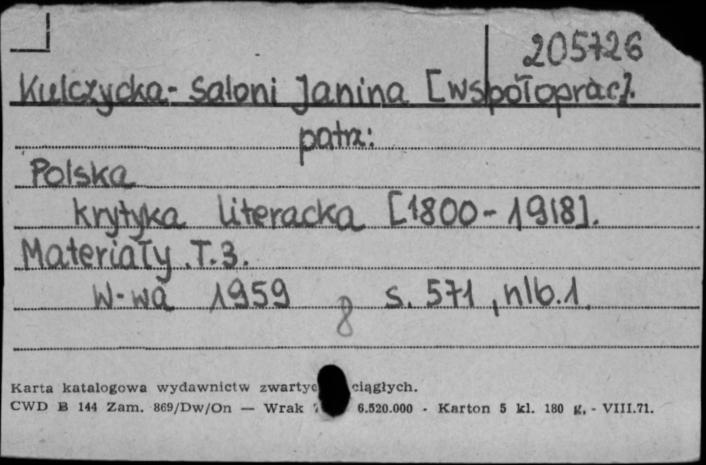 205726
Kulczycka-Saloni Janina [współoprac].
patrz:
Polska
krytyka literacka [1800-1918].
Materiały. T. 3.
W-wa 1959 s. 571, nlb. 1
8
Karta katalogowa wydawnictw ciągłych.
CWD B 144 Zam. 869/Dw/On — Wrak 6.520.000 - Karton 5 kl. 180 g, - VIII.71.